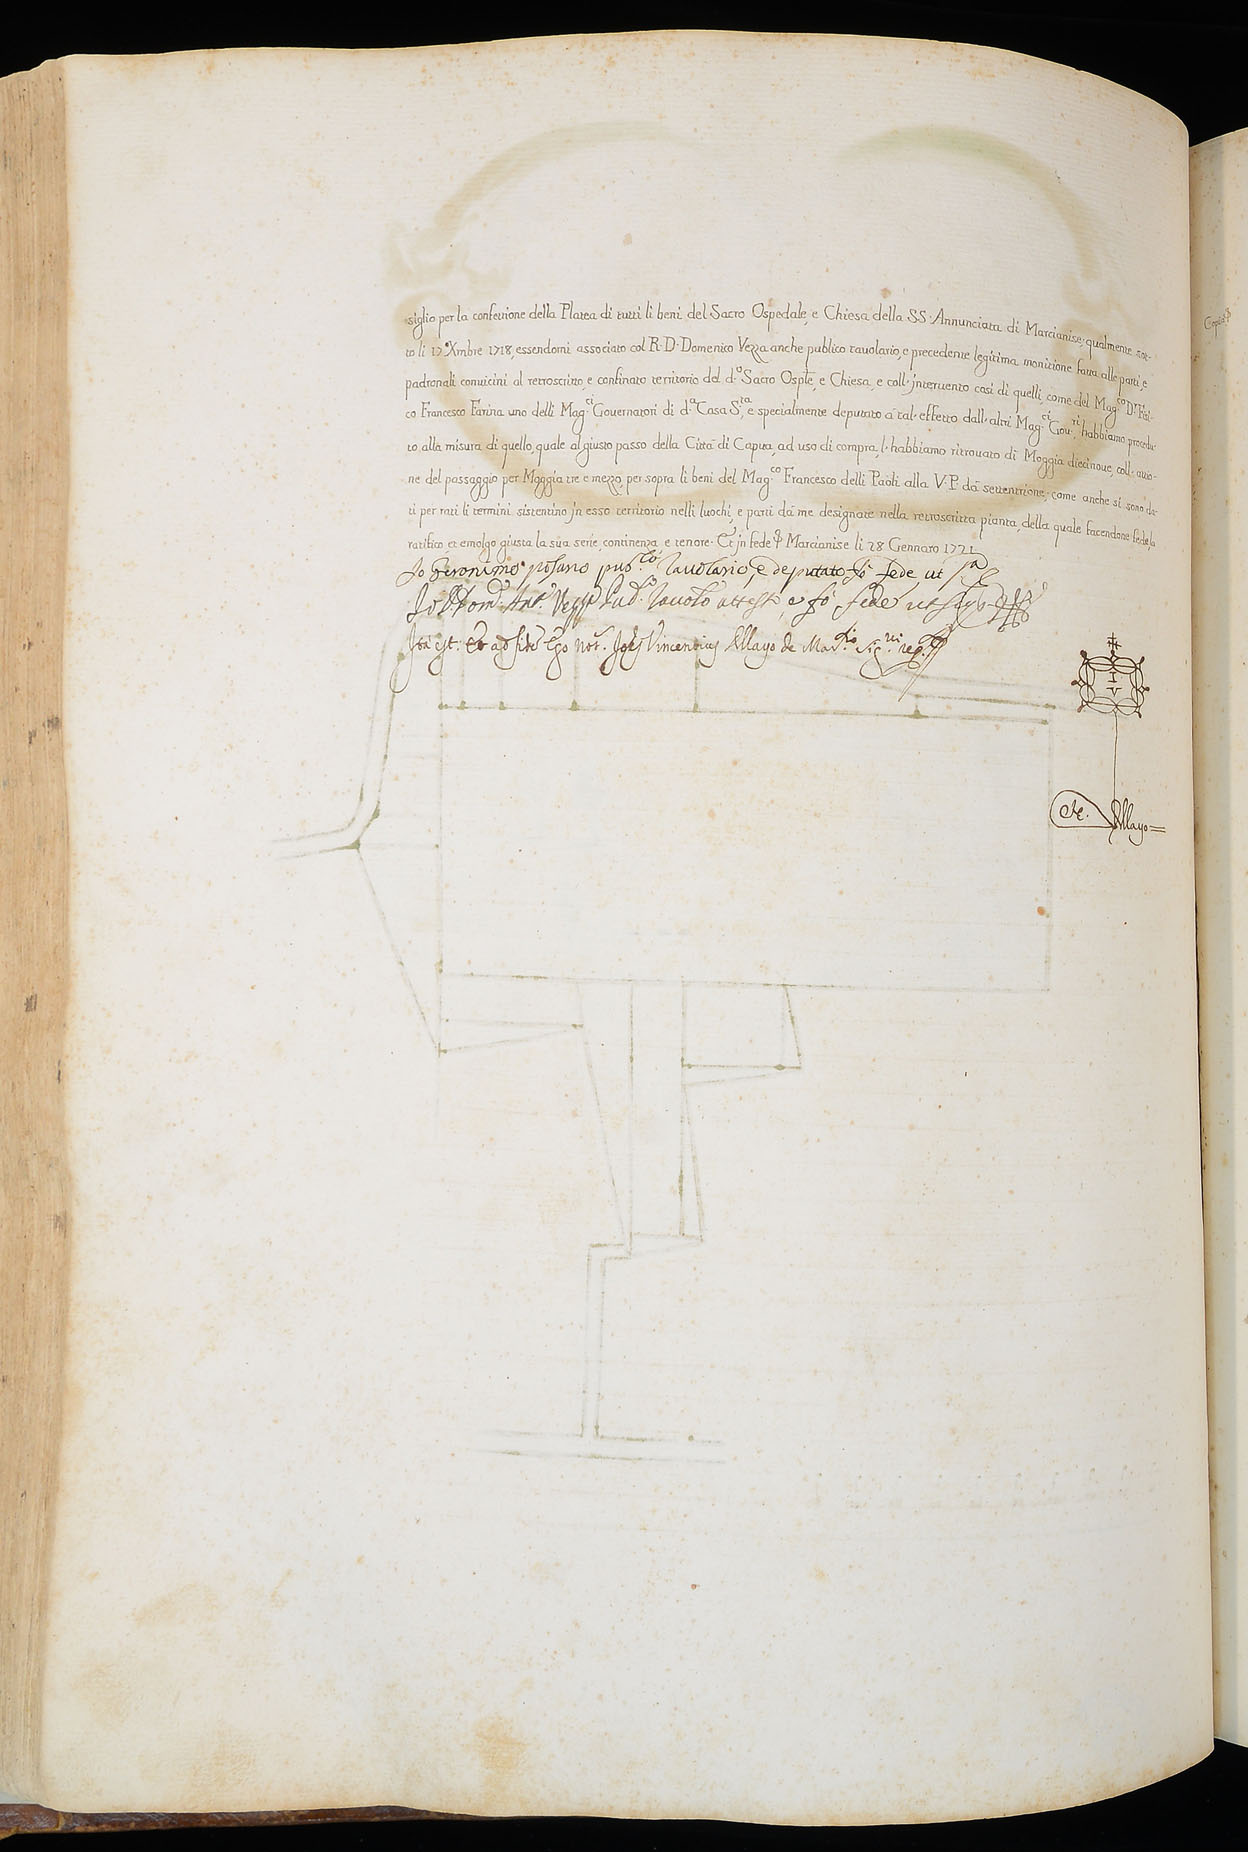 siglio per la confezione della Platea di tutti li beni del Sacro Ospedale, e Chiesa della SS. Annunciata di Marcianise; qualmente sot-
to li 17 Xmbre 1718, essendomi associato col R. D. Domenico Vezza anche publico tavolario, e precedente legitima monitione fatta alle parti, e
padronali convicini al retroscritto, e confinato territorio del d.º Sacro Osple, e Chiesa, e coll' jntervento così di quelli, come del Mag.co D.r Feli-
co Francesco Farina uno delli Mag.ci Governatori di d.a Casa S.ta, e specialmente deputato à tal' effetto dall' altri Mag.ci Gov.ri habbiamo procedu-
to alla misura di quello, quale al giusto passo della Città di Capua, ad uso di compra, l' habbiamo ritrovato di Moggia diecinove, coll' azio-
ne del passaggio per Moggia tre e mezzo, per sopra li beni del Mag.co Francesco delli Paoli alla V.P. dà settentrione; come anche si sono da-
ti per rati li termini sistentino jn esso territorio nelli luochi, e parti dà me designate nella retroscritta pianta, della quale facendone fede, la
ratifico et emolgo giusta la sua serie, continenza, e tenore. Et jn fede &c. Marcianise li 28 Gennaro 1721
Io Geronimo posano pub.co Tavolario, e deputato fò fede ut s.a
Io D. Dom. Ant. Vezza Pub.co Tavol.o attesto, e fò fede ut supra
Ita est: Et ad fidem Ego not. Joes Vincentius Allayo de Mar.sio sig.vi reg.
I
V
de Allayo
Copia